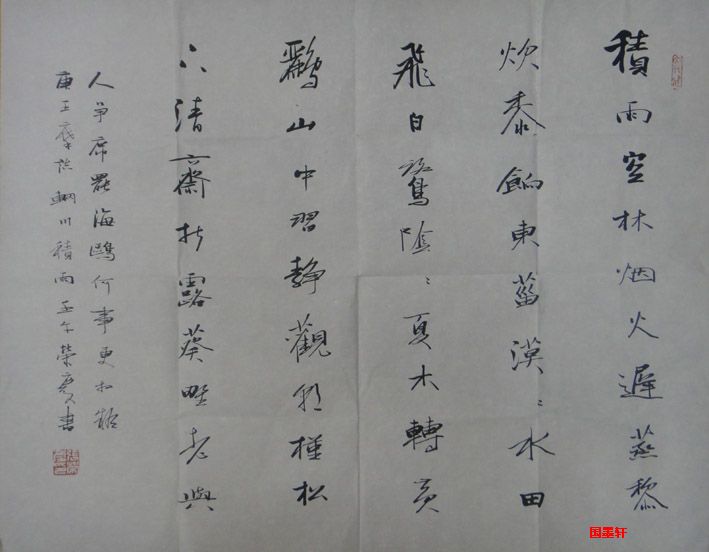 積雨空林烟火遲蒸黎
炊黍餉東菑漠〻水田
飛白鷺陰〻夏木轉黃
鸝山中習静觀朝槿松
下清齋折露葵野老與
人爭席罷海鷗何事更相疑
唐王摩詰輞川積雨壬午榮慶書
国墨轩